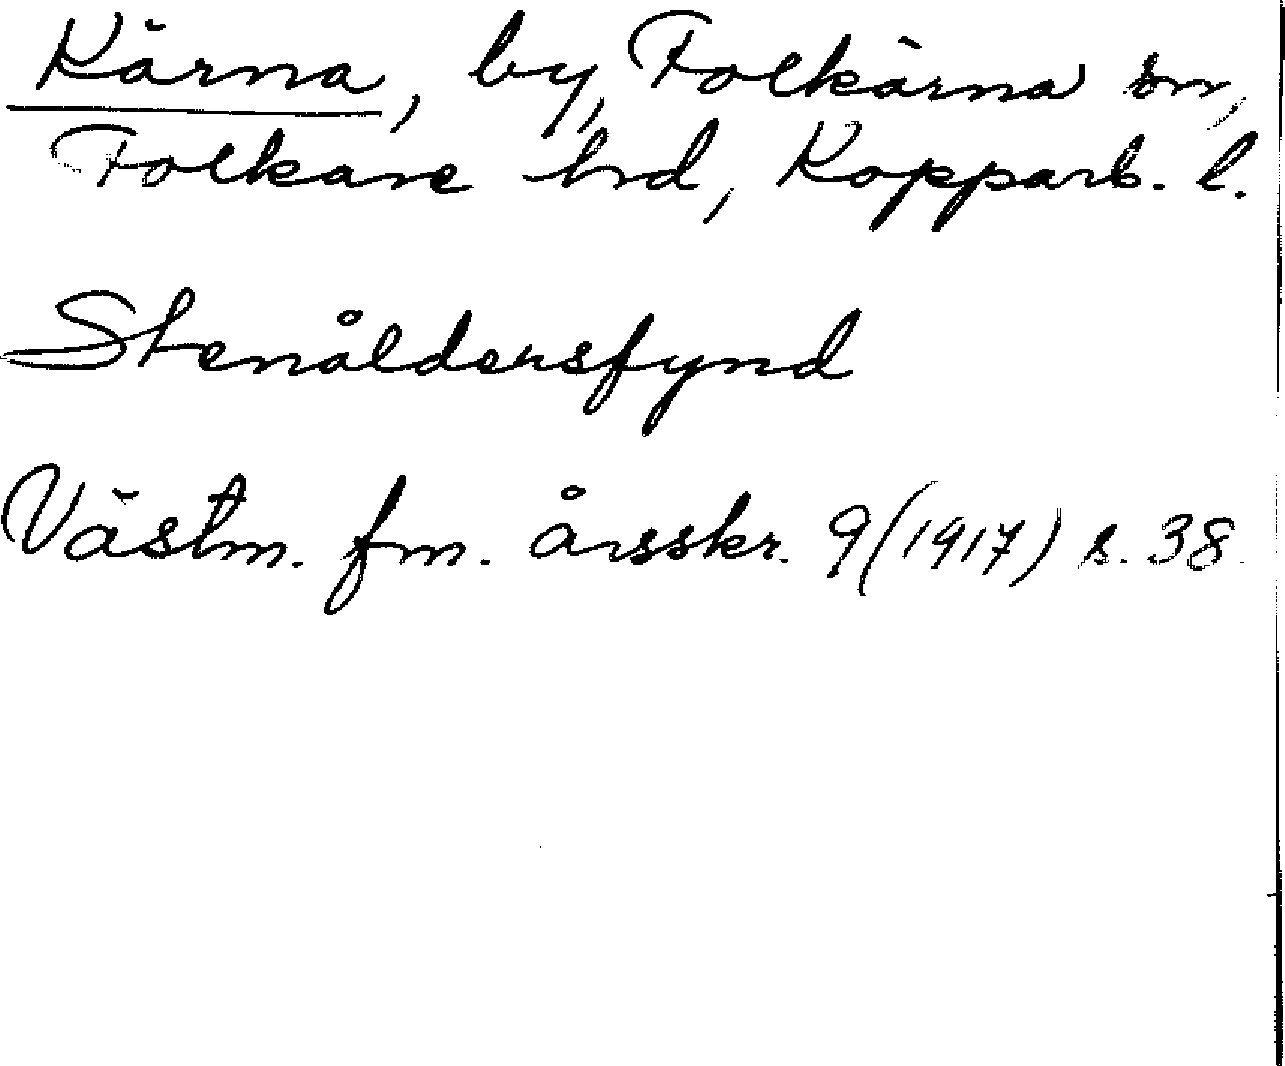 Kärna, by, Folkärna sn,
Folkare hrd, Kopparb. l.
Stenåldersfynd
Västm. fm. årsskr. 9(1917) s. 38.